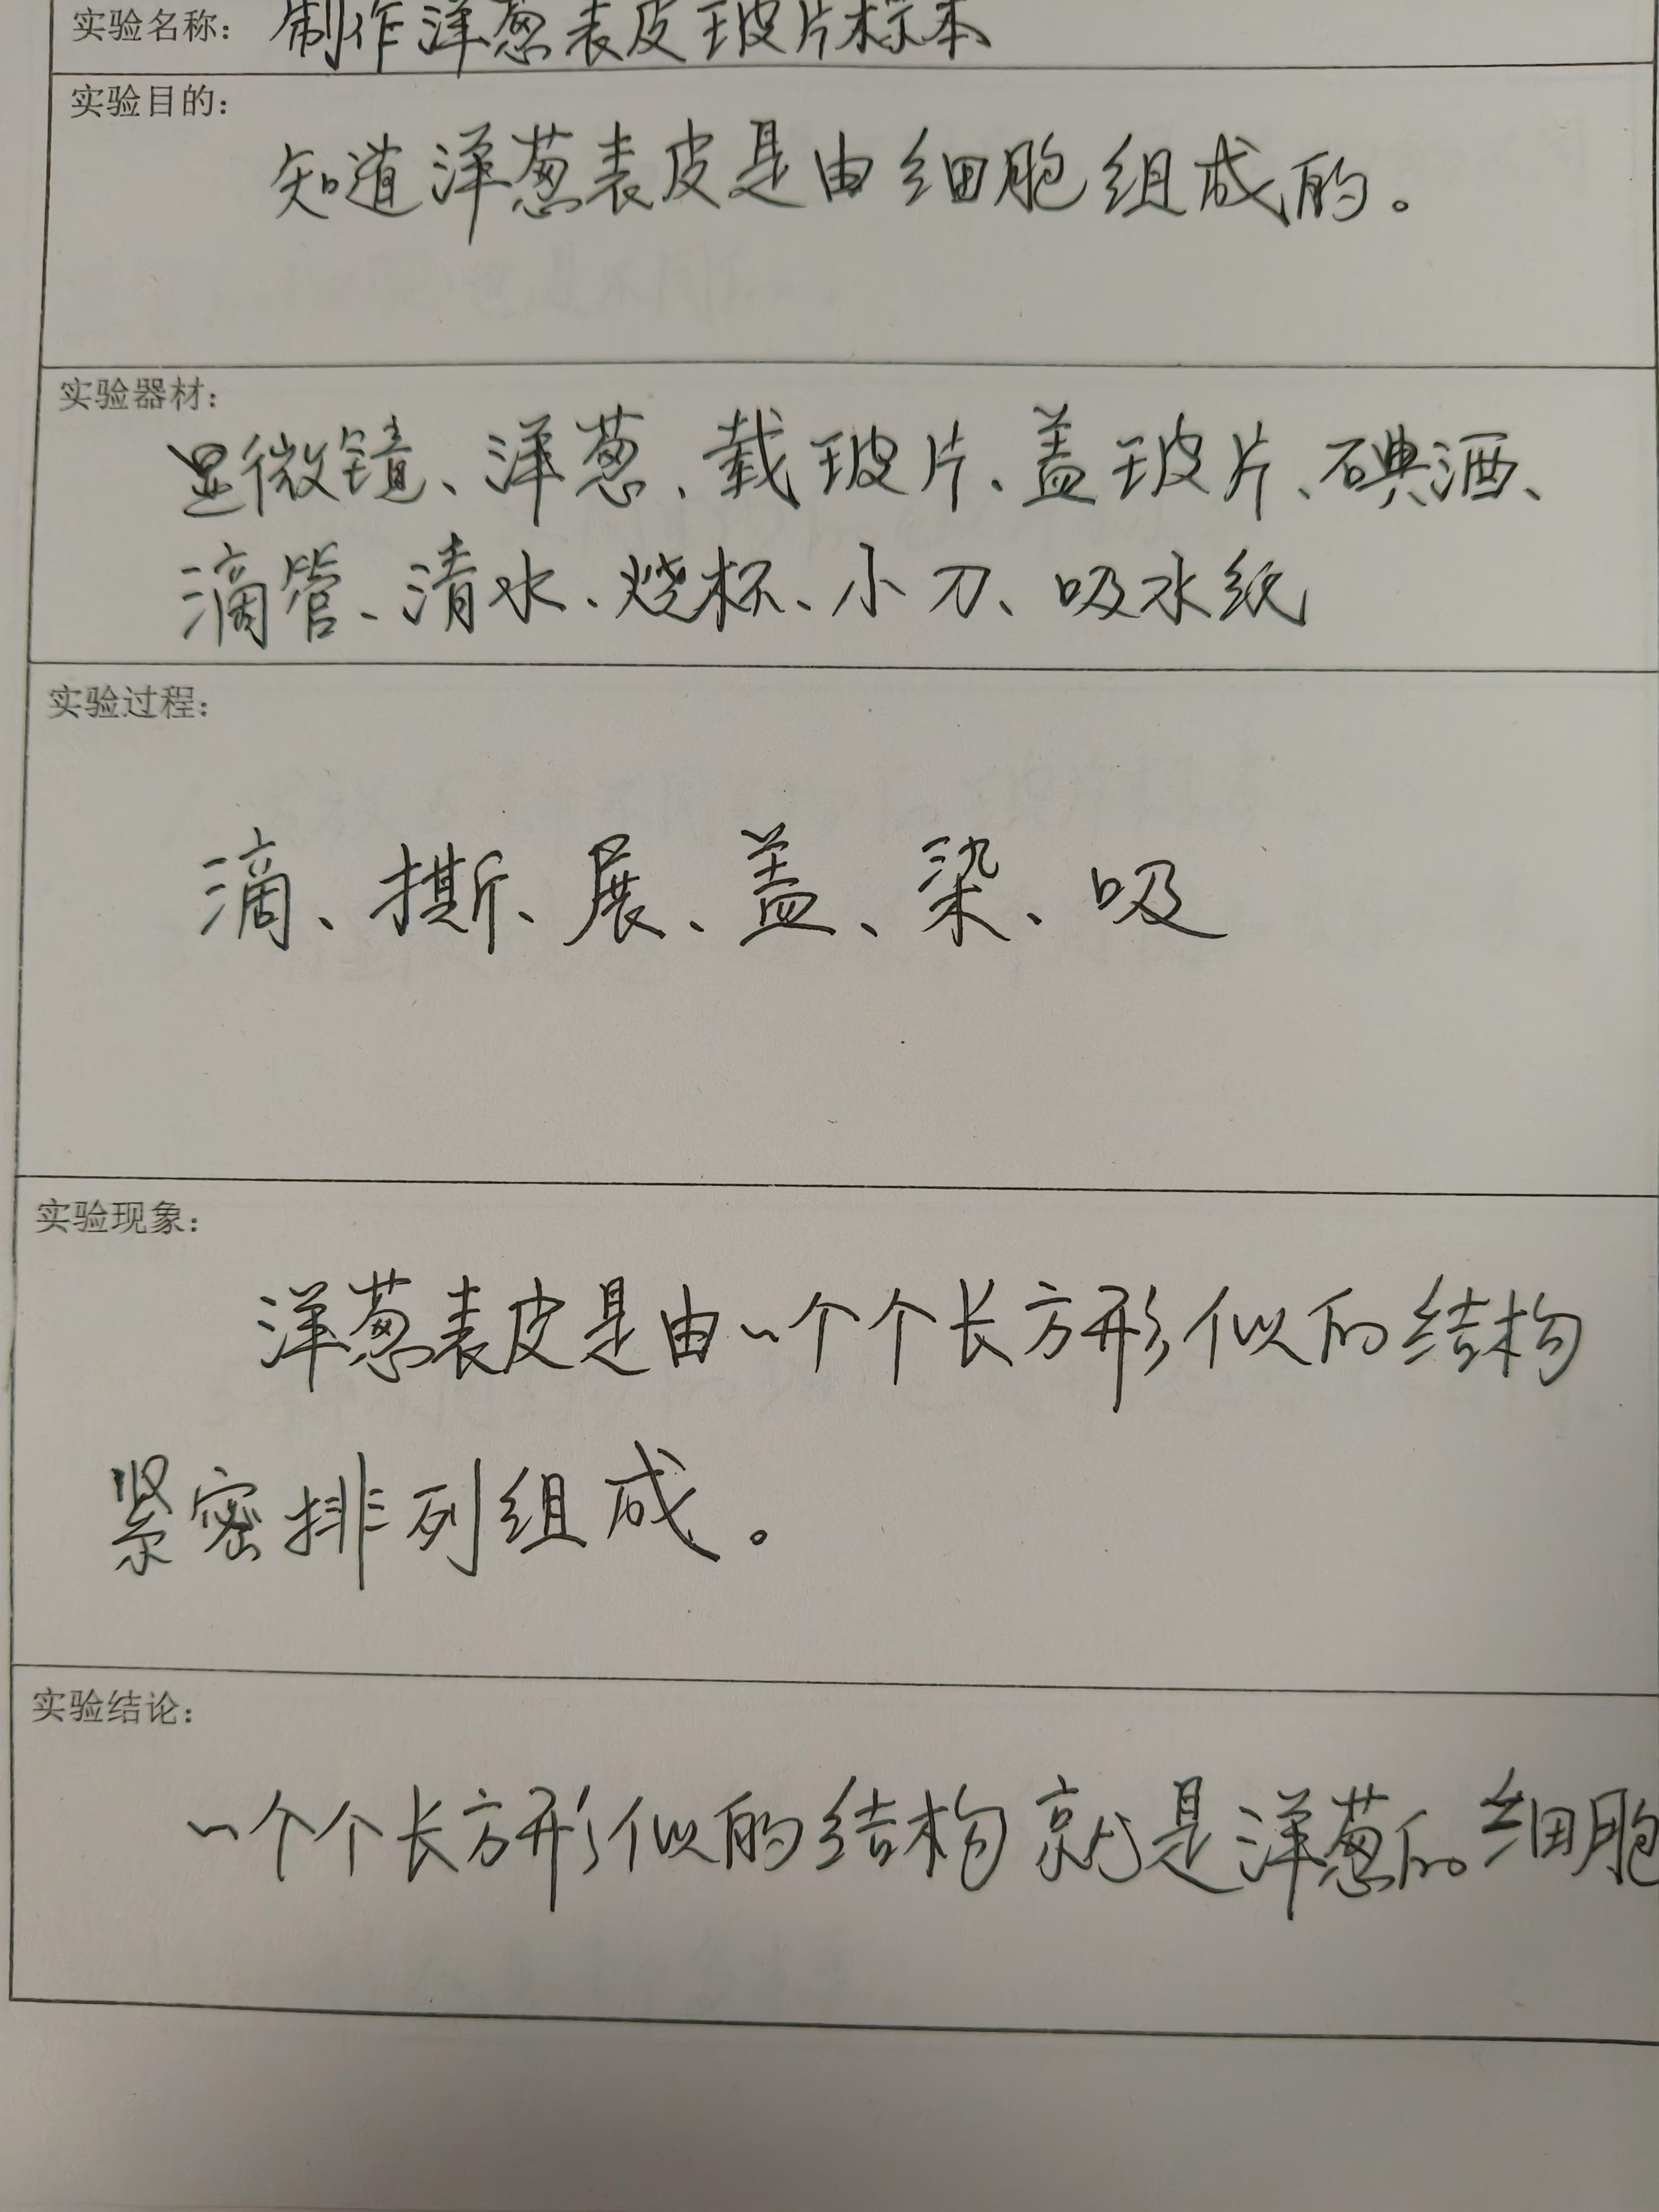 实验名称：制作洋葱表皮玻片标本
实验目的：
知道洋葱表皮是由细胞组成的。
实验器材：
显微镜、洋葱、载玻片、盖玻片、碘酒、
滴管、清水、烧杯、小刀、吸水纸
实验过程：
滴、撕、展、盖、染、吸
实验现象：
洋葱表皮是由一个个长方形似的结构
紧密排列组成。
实验结论：
一个个长方形似的结构就是洋葱的细胞